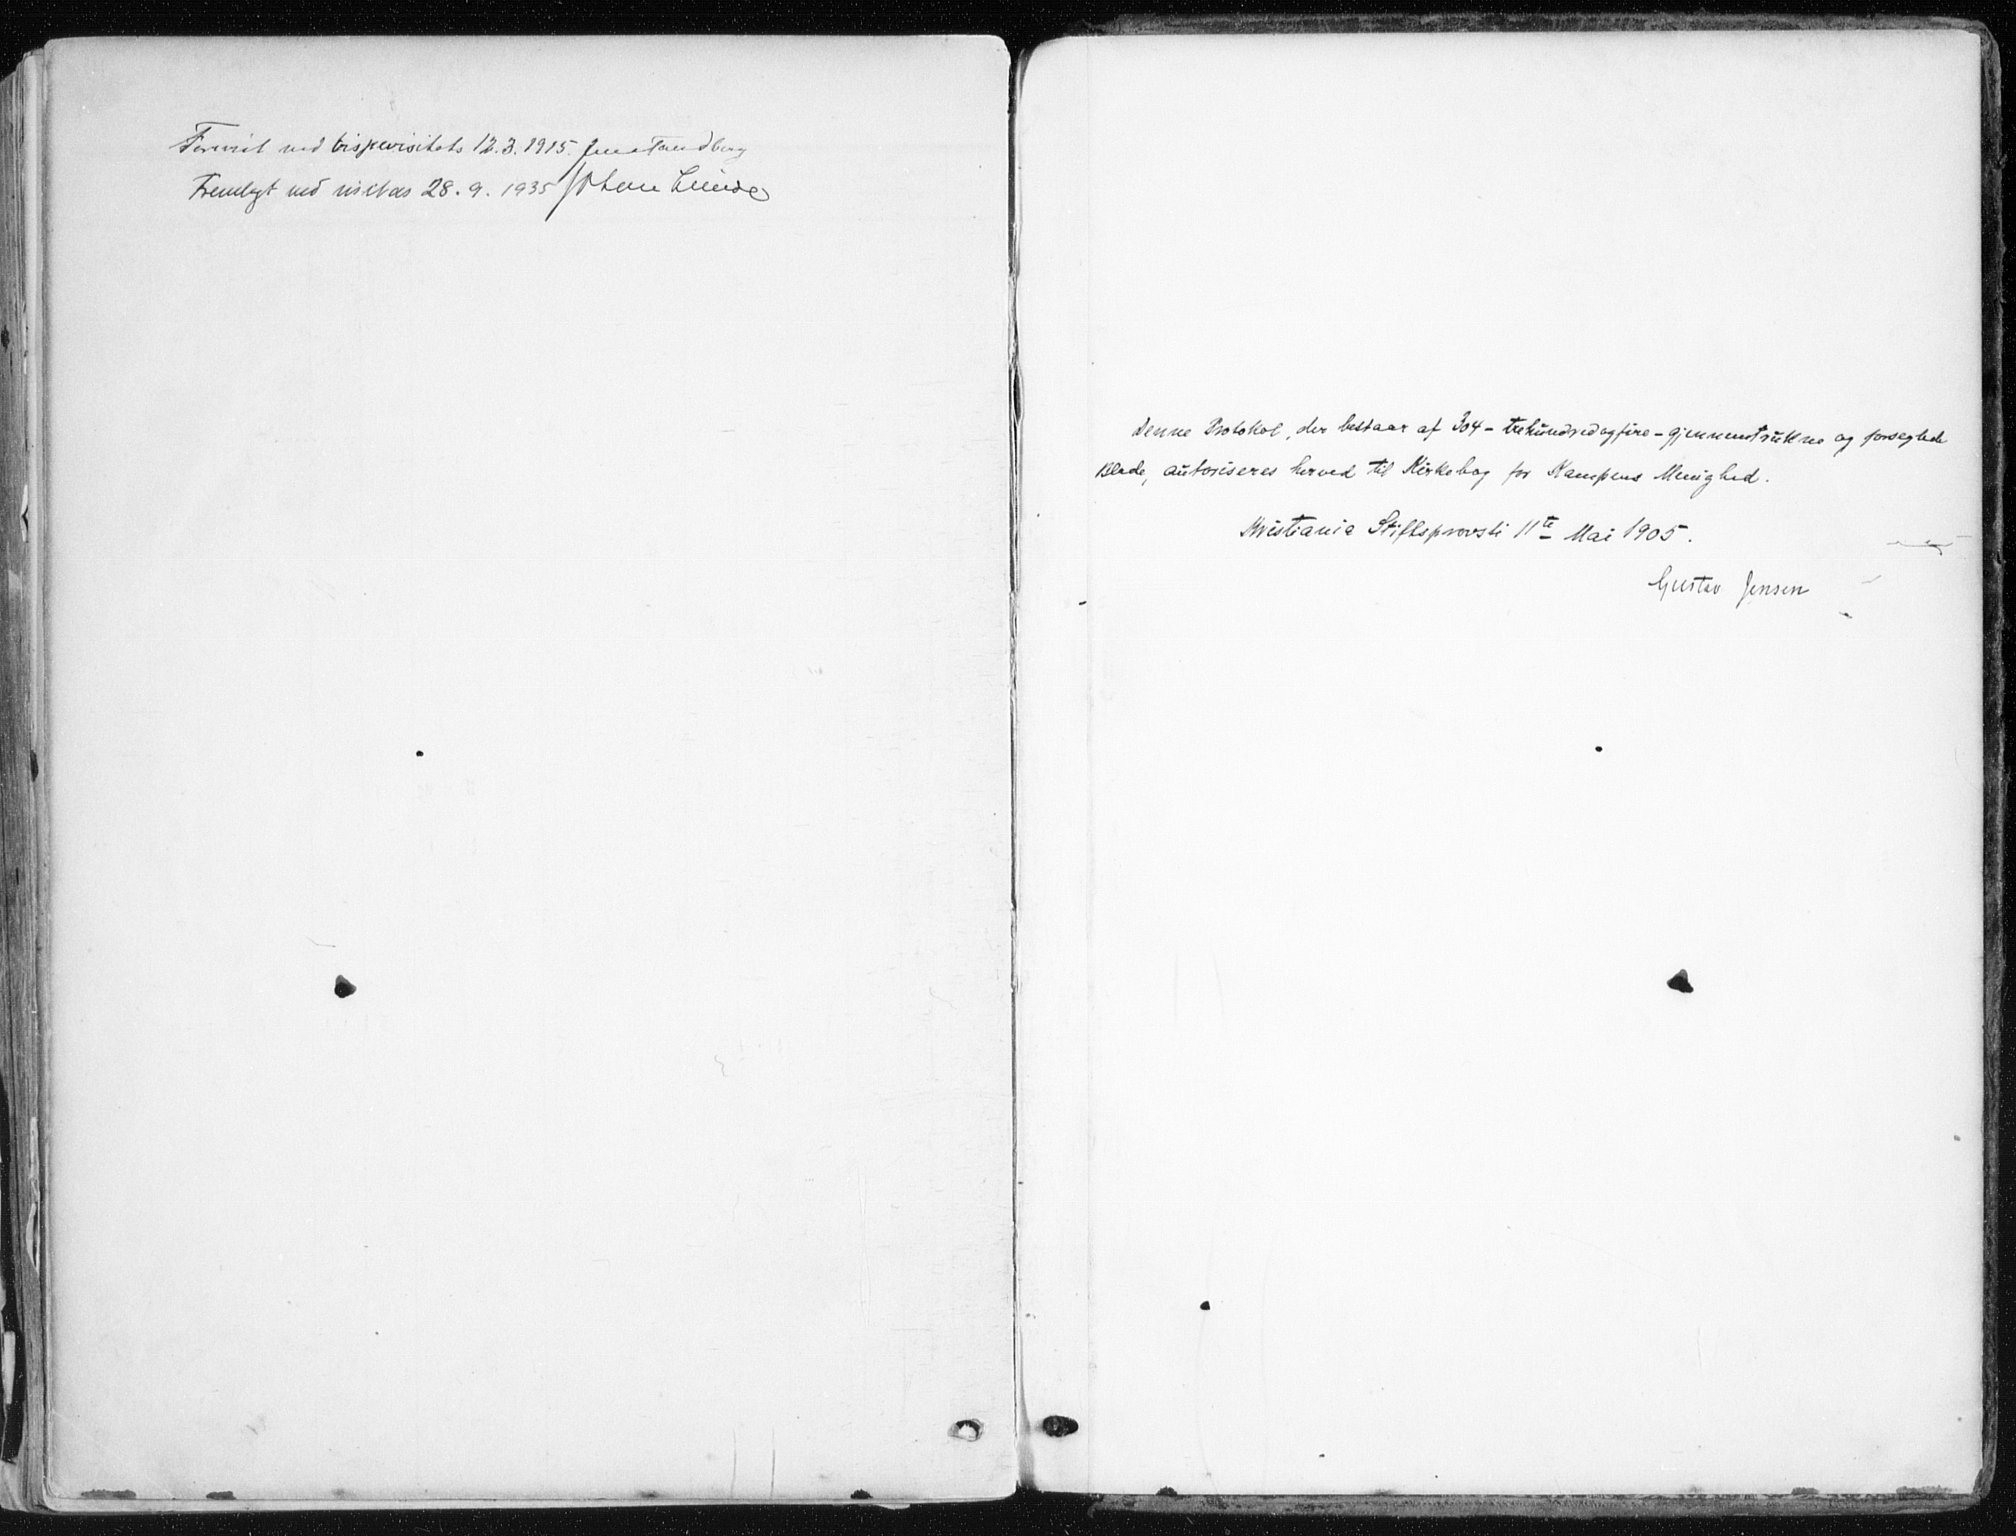 Forevist ved bispevisitats 12.3.1915. Jens Tandberg
Fremlagt ved visitas 28.9.1935 Johan Lunde
Denne Protokol, der bestaar af 304 - trehundredogfire - gjennemtrukne og forseglede
Blade, autoriseres herved til Kirkebog for Kampens Menighed.
Kristiania Stiftsprovsti 11te Mai 1905.
Gustav Jensen